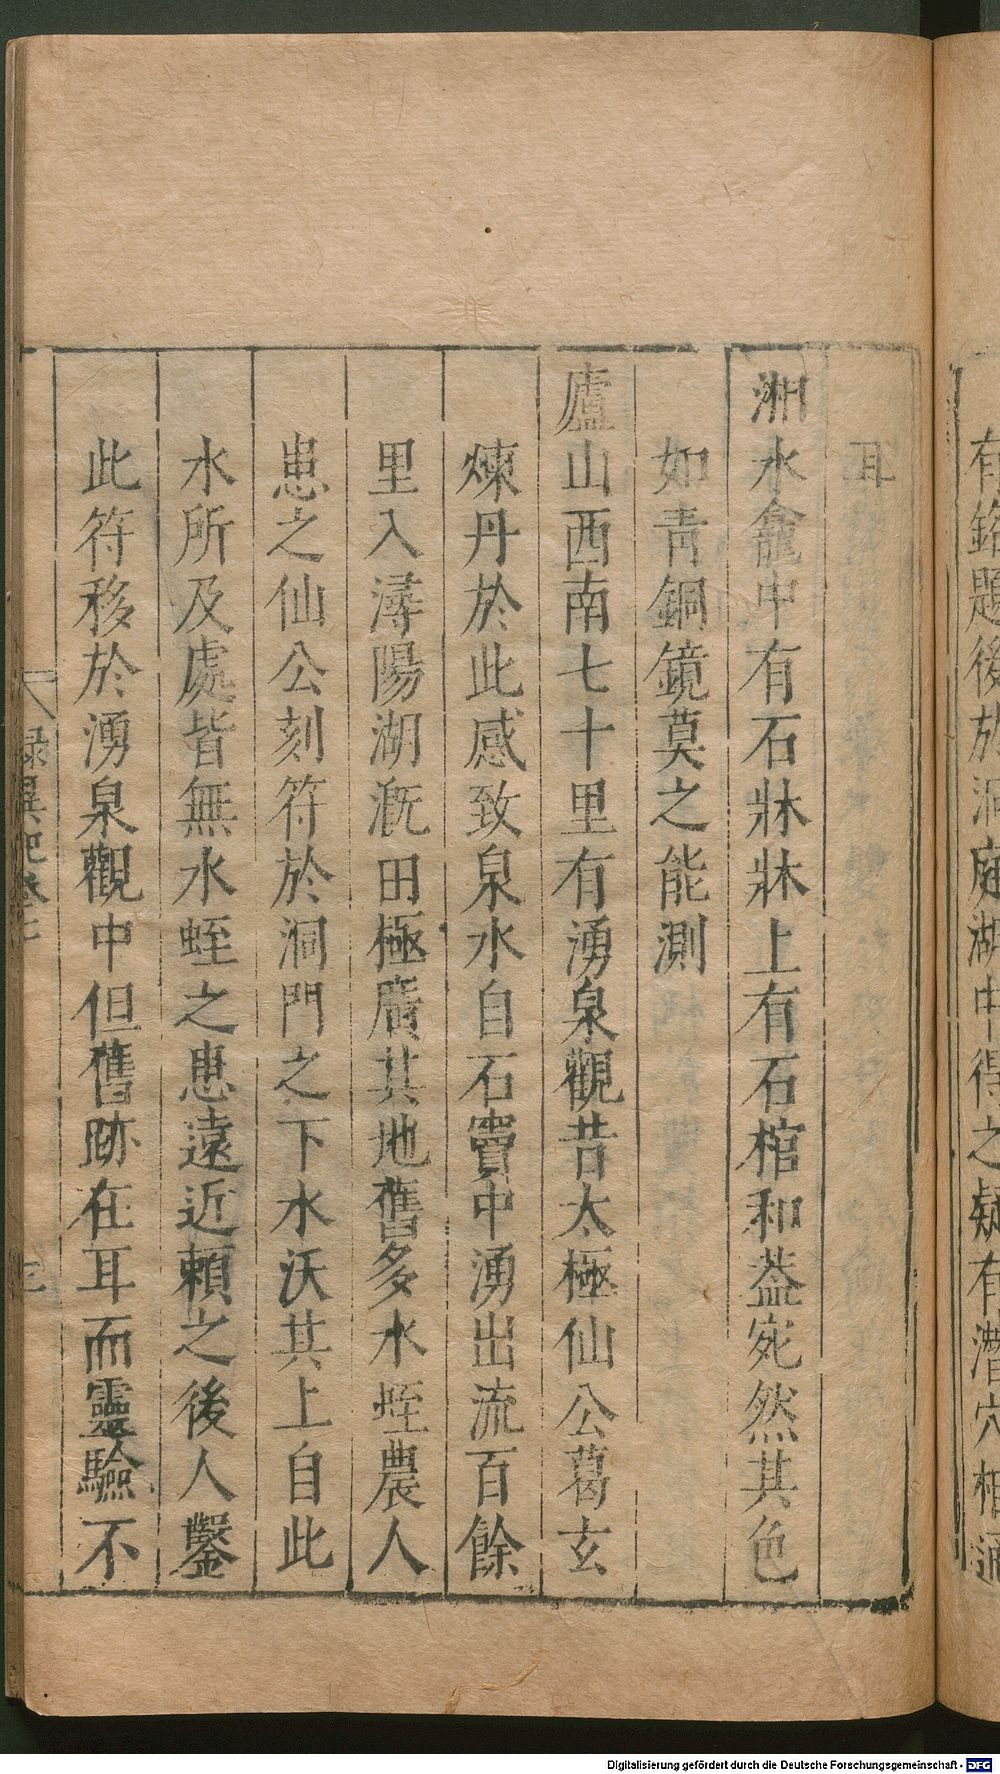 有銘題後於洞庭湖中得之疑有潛穴相通
耳
湘水龕中有石牀牀上有石棺和葢宛然其色
如青銅鏡莫之能測
廬山西南七十里有湧泉觀昔太極仙公葛玄
煉丹於此感致泉水自石竇中湧出流百餘
里入潯陽湖溉田極廣其地舊多水蛭農人
患之仙公刻符於洞門之下水沃其上自此
水所及處皆無水蛭之患遠近賴之後人鑿
此符移於湧泉觀中但舊跡在耳而靈驗不
録異記卷七
Digitalisierung gefördert durch die Deutsche Forschungsgemeinschaft - DFG